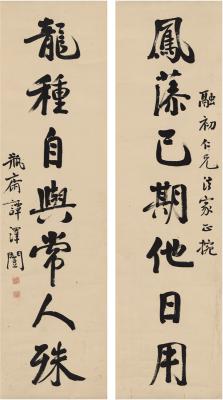 融初仁兄法家正捥
鳳藻已期他日用
龍種自與常人殊
瓶齋譚澤闓